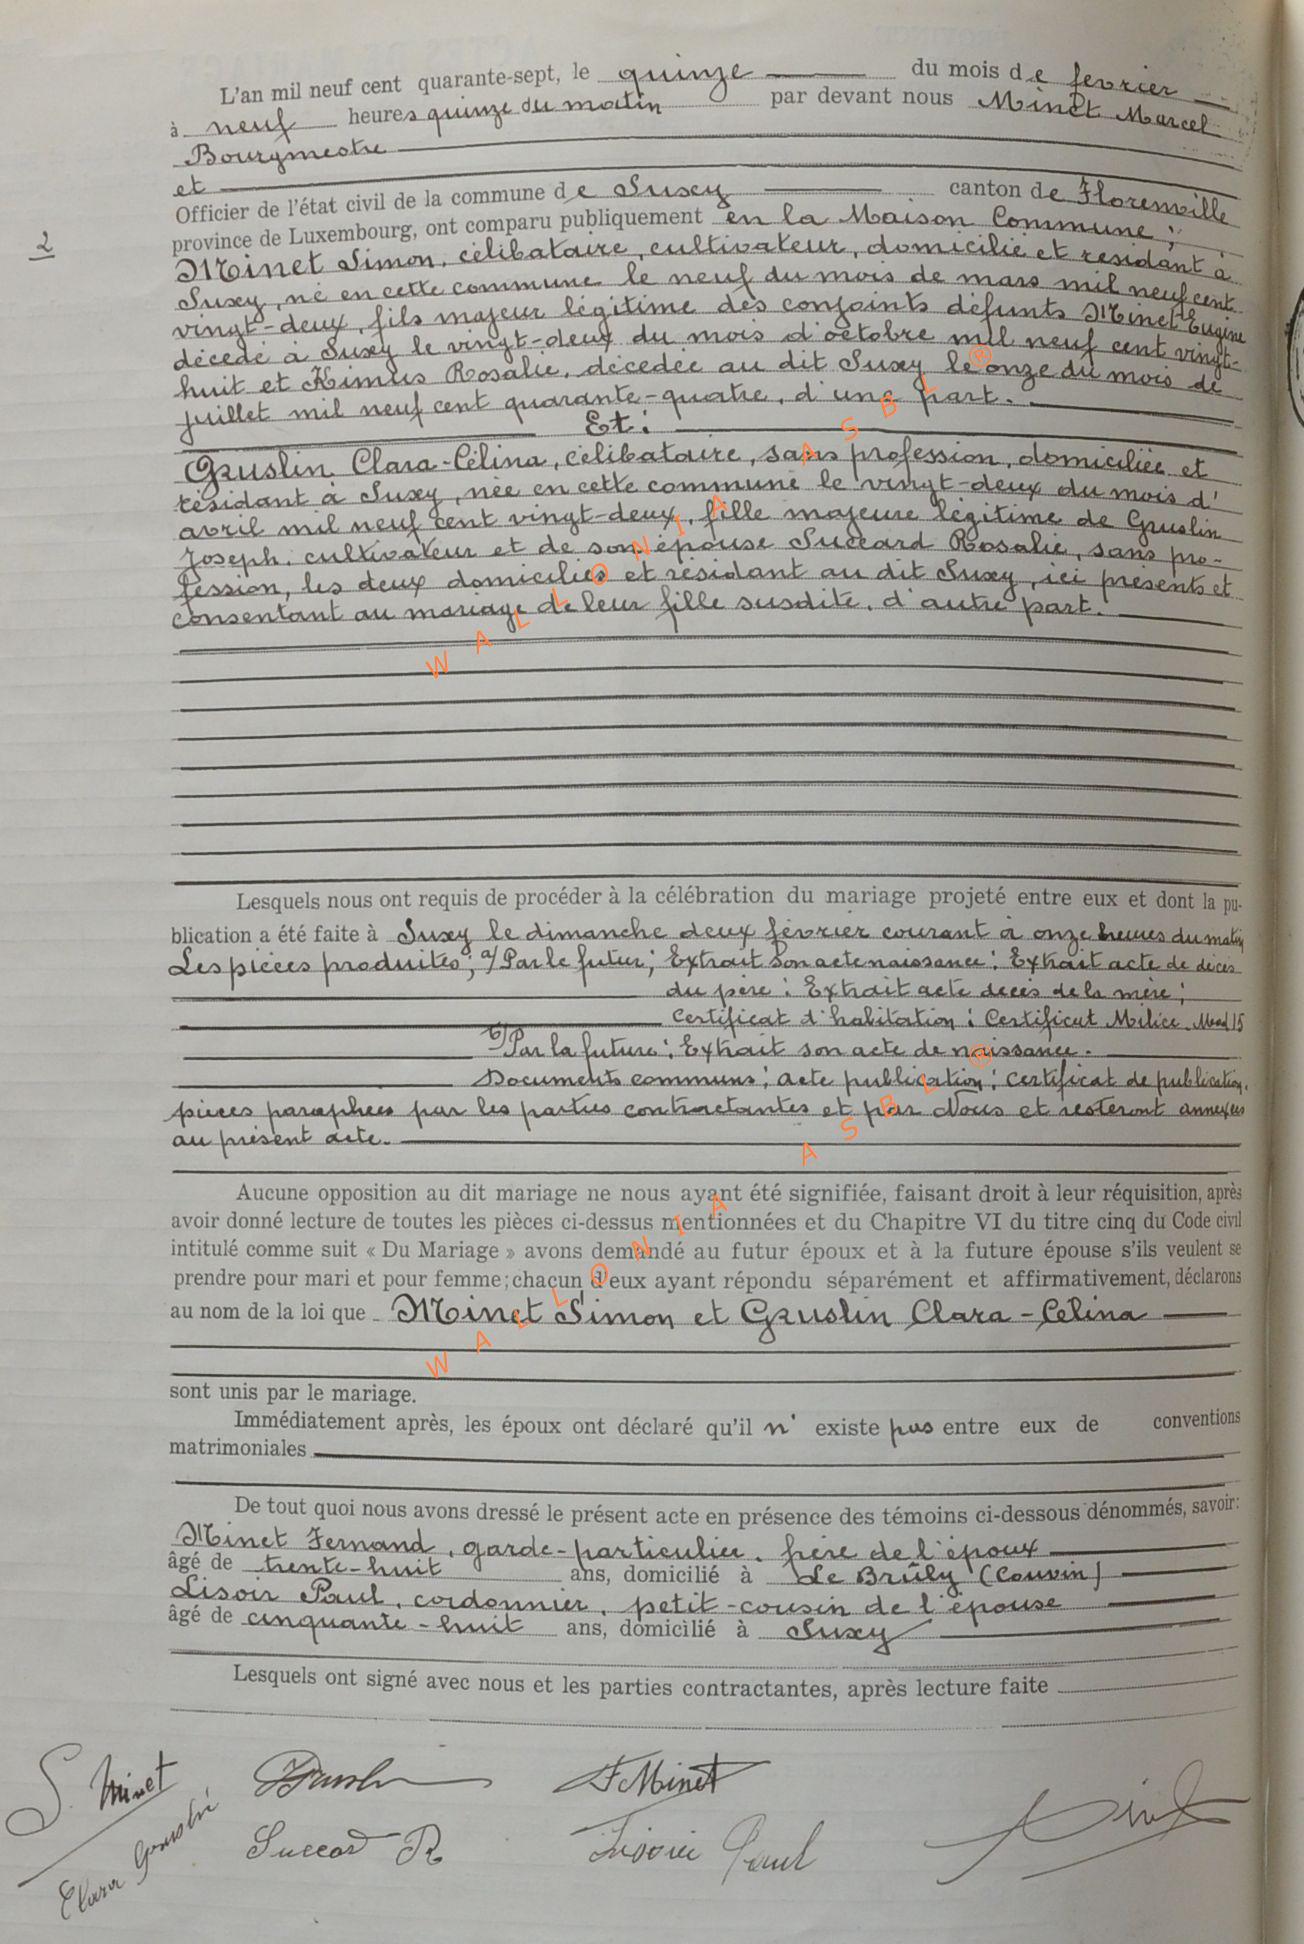 L'an mil neuf cent quarante-sept, le quinze du mois de fevrier
à neuf heures quinze du matin par devant nous Minet Marcel
Bourgmestre
et
Officier de l'état civil de la commune de Suxy canton de Florenville
province de Luxembourg, ont comparu publiquement en la Maison Commune ;
Minet Simon, célibataire, cultivateur, domicilié et résidant à
Suxy, né en cette commune le neuf du mois de mars mil neuf cent
vingt-deux, fils majeur légitime des conjoints défunts Minet Eugène
décédé à Suxy le vingt-deux du mois d'octobre mil neuf cent vingt-
huit et Rosalie, décédée au dit Suxy le onze du mois de
juillet mil neuf cent quarante-quatre, d'une part.
Et :
Gruslin Clara-Célina, célibataire, sans profession, domiciliée et
résidant à Suxy, née en cette commune le vingt-deux du mois d'
avril mil neuf cent vingt-deux, fille majeure légitime de Gruslin
Joseph, cultivateur et de son épouse Succard Rosalie, sans pro-
fession, les deux domiciliés et résidant au dit Suxy, ici présents et
consentant au mariage de leur fille susdite, d'autre part.
2
Lesquels nous ont requis de procéder à la célébration du mariage projeté entre eux et dont la pu-
blication a été faite à Suxy le dimanche deux février courant à onze heures du matin
Les pièces produites ; a/ Par le futur ; Extrait son acte naissance : Extrait acte de décès
du père : Extrait acte décès de la mère ;
Certificat d'habitation : Certificat Milice. Mod 15
b/ Par la future : Extrait son acte de naissance.
Documents communs ; acte publication ; certificat de publication.
pièces paraphées par les parties contractantes et par Nous et resteront annexées
au présent acte.
Aucune opposition au dit mariage ne nous ayant été signifiée, faisant droit à leur réquisition, après
avoir donné lecture de toutes les pièces ci-dessus mentionnées et du Chapitre VI du titre cinq du Code civil
intitulé comme suit « Du Mariage » avons demandé au futur époux et à la future épouse s'ils veulent se
prendre pour mari et pour femme ; chacun d'eux ayant répondu séparément et affirmativement, déclarons
au nom de la loi que Minet Simon et Gruslin Clara-Célina
sont unis par le mariage.
Immédiatement après, les époux ont déclaré qu'il n' existe pas entre eux de conventions
matrimoniales
De tout quoi nous avons dressé le présent acte en présence des témoins ci-dessous dénommés, savoir :
Minet Fernand, garde-particulier, frère de l'époux
âgé de trente-huit ans, domicilié à Le Brûly (Couvin)
Lisoir Paul, cordonnier, petit-cousin de l'épouse
âgé de cinquante-huit ans, domicilié à Suxy
Lesquels ont signé avec nous et les parties contractantes, après lecture faite
S. Minet
F Minet
Succard R
Lisoir Paul
Clara
WALLONIA ASBL ®
WALLONIA ASBL ®